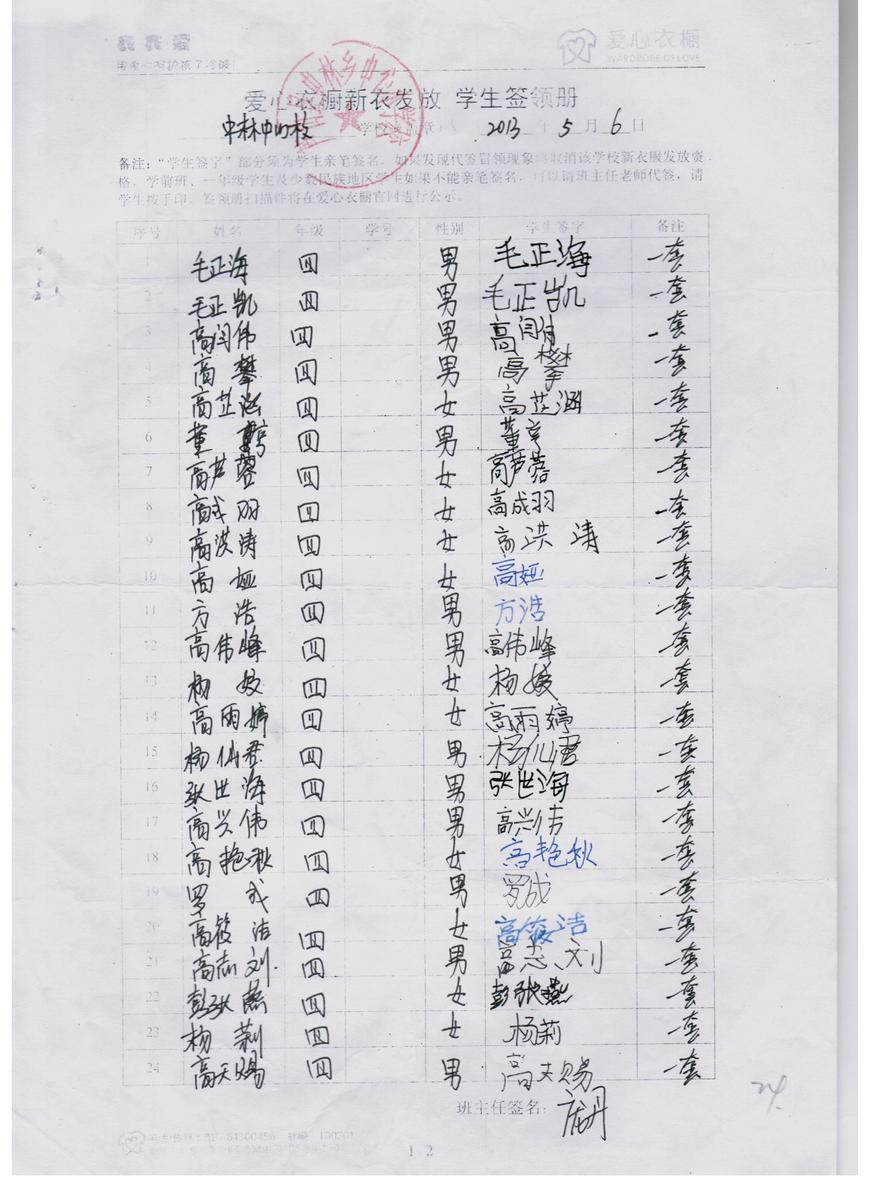 爱心衣橱
WARDROBE OF LOVE
用爱心呵护孩子冷暖
爱心衣橱新衣发放 学生签领册
中林中心校 学校（盖章） 2013 年 5 月 6 日
备注：“学生签字”部分须为学生亲笔签名，如果发现代签冒领现象将取消该学校新衣服发放资
格，学前班、一年级学生及少数民族地区学生如果不能亲笔签名，可以请班主任老师代签，请
学生按手印。签领册扫描件将在爱心衣橱官网进行公示。
序号 姓名 年级 学号 性别 学生签字 备注
1 毛正海 四 男 毛正海 一套
2 毛正凯 四 男 毛正凯 一套
3 高闰伟 四 男 高闰 一套
4 高攀 四 男 高攀 一套
5 高芷涵 四 女 高芷涵 一套
6 董亨 四 男 董亨 一套
7 高芦蓉 四 女 高芦蓉 一套
8 高成羽 四 女 高成羽 一套
9 高洪涛 四 女 高洪涛 一套
10 高娅 四 女 高娅 一套
11 方浩 四 男 方浩 一套
12 高伟峰 四 男 高伟峰 一套
13 杨 四 女 杨 一套
14 高雨婷 四 女 高雨婷 一套
15 杨仙君 四 男 杨仙君 一套
16 张世海 四 男 张世海 一套
17 高兴伟 四 男 高兴伟 一套
18 高艳秋 四 女 高艳秋 一套
19 罗成 四 男 罗成 一套
20 高筱洁 四 女 高筱洁 一套
21 高志刘 四 男 高志刘 一套
22 彭张燕 四 女 彭张燕 一套
23 杨莉 四 女 杨莉 一套
24 高天赐 四 男 高天赐 一套
班主任签名：
24
12